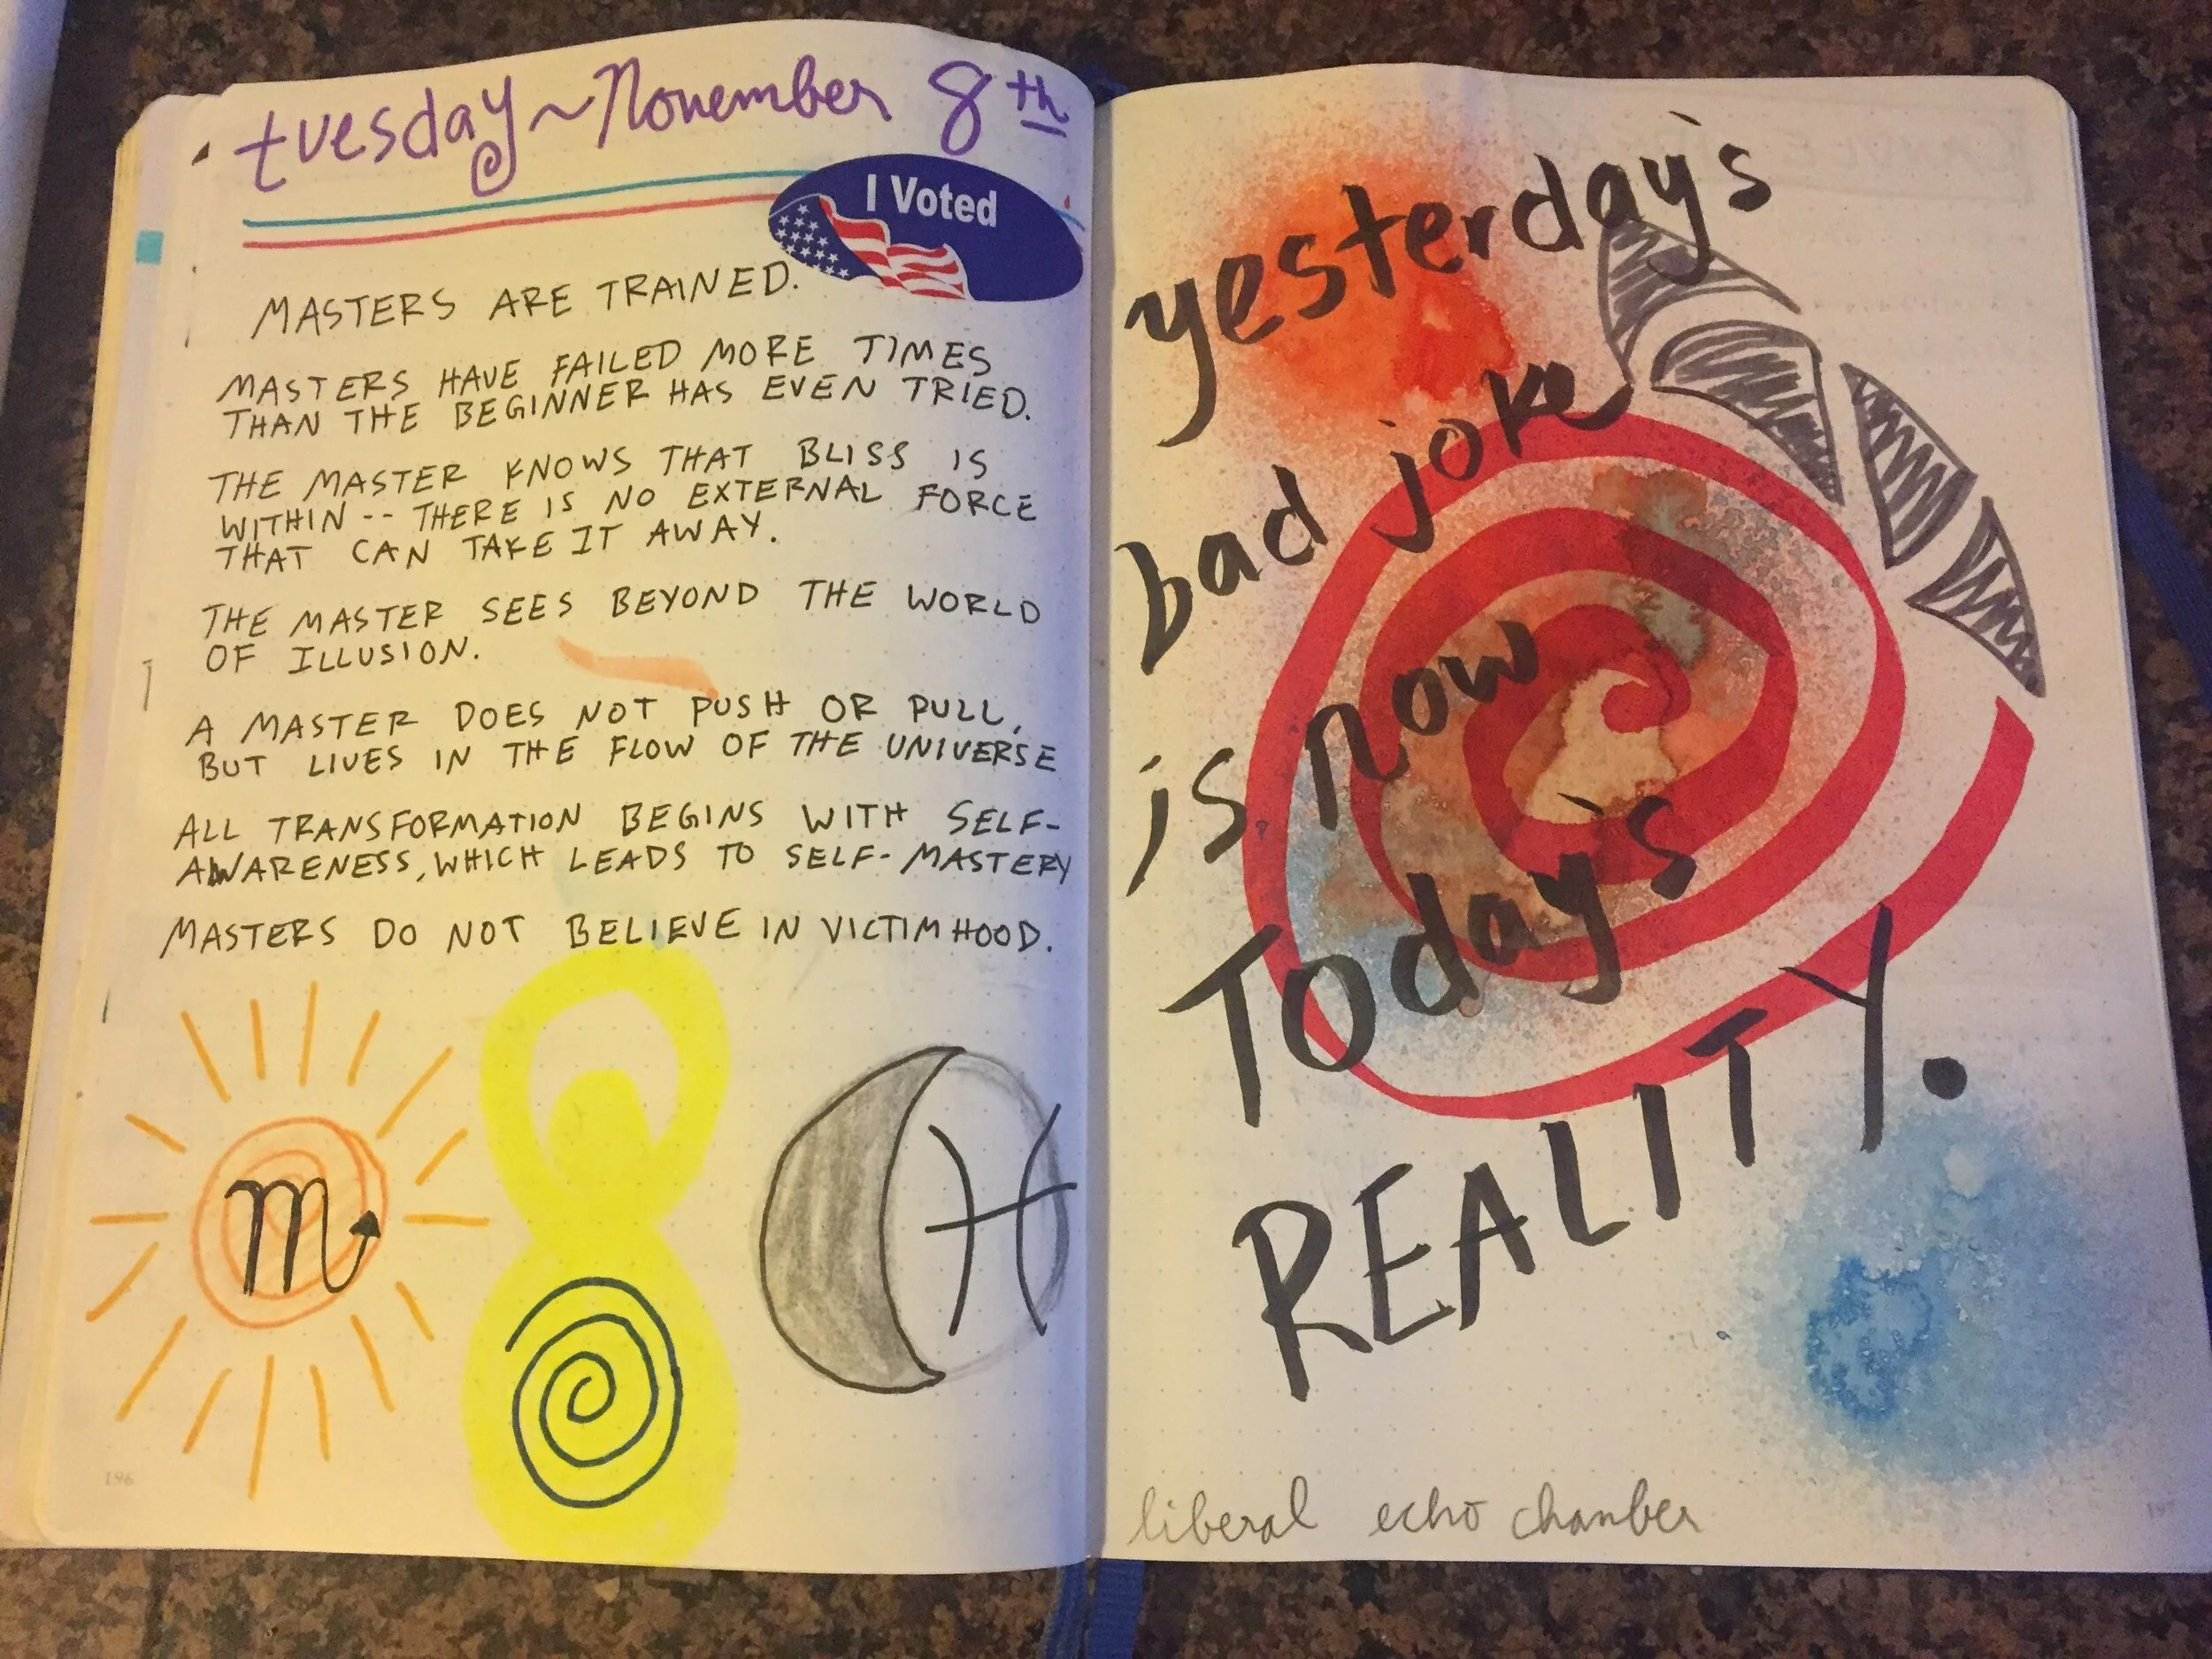 tuesday~November 8th
I Voted
MASTERS ARE TRAINED.
MASTERS HAVE FAILED MORE TIMES
THAN THE BEGINNER HAS EVEN TRIED.
THE MASTER KNOWS THAT BLISS IS
WITHIN -- THERE IS NO EXTERNAL FORCE
THAT CAN TAKE IT AWAY.
THE MASTER SEES BEYOND THE WORLD
OF ILLUSION.
A MASTER DOES NOT PUSH OR PULL,
BUT LIVES IN THE FLOW OF THE UNIVERSE
ALL TRANSFORMATION BEGINS WITH SELF-
AWARENESS, WHICH LEADS TO SELF-MASTERY
MASTERS DO NOT BELIEVE IN VICTIMHOOD.
196
yesterday's
bad joke
is now
Today's
REALITY.
liberal echo chamber